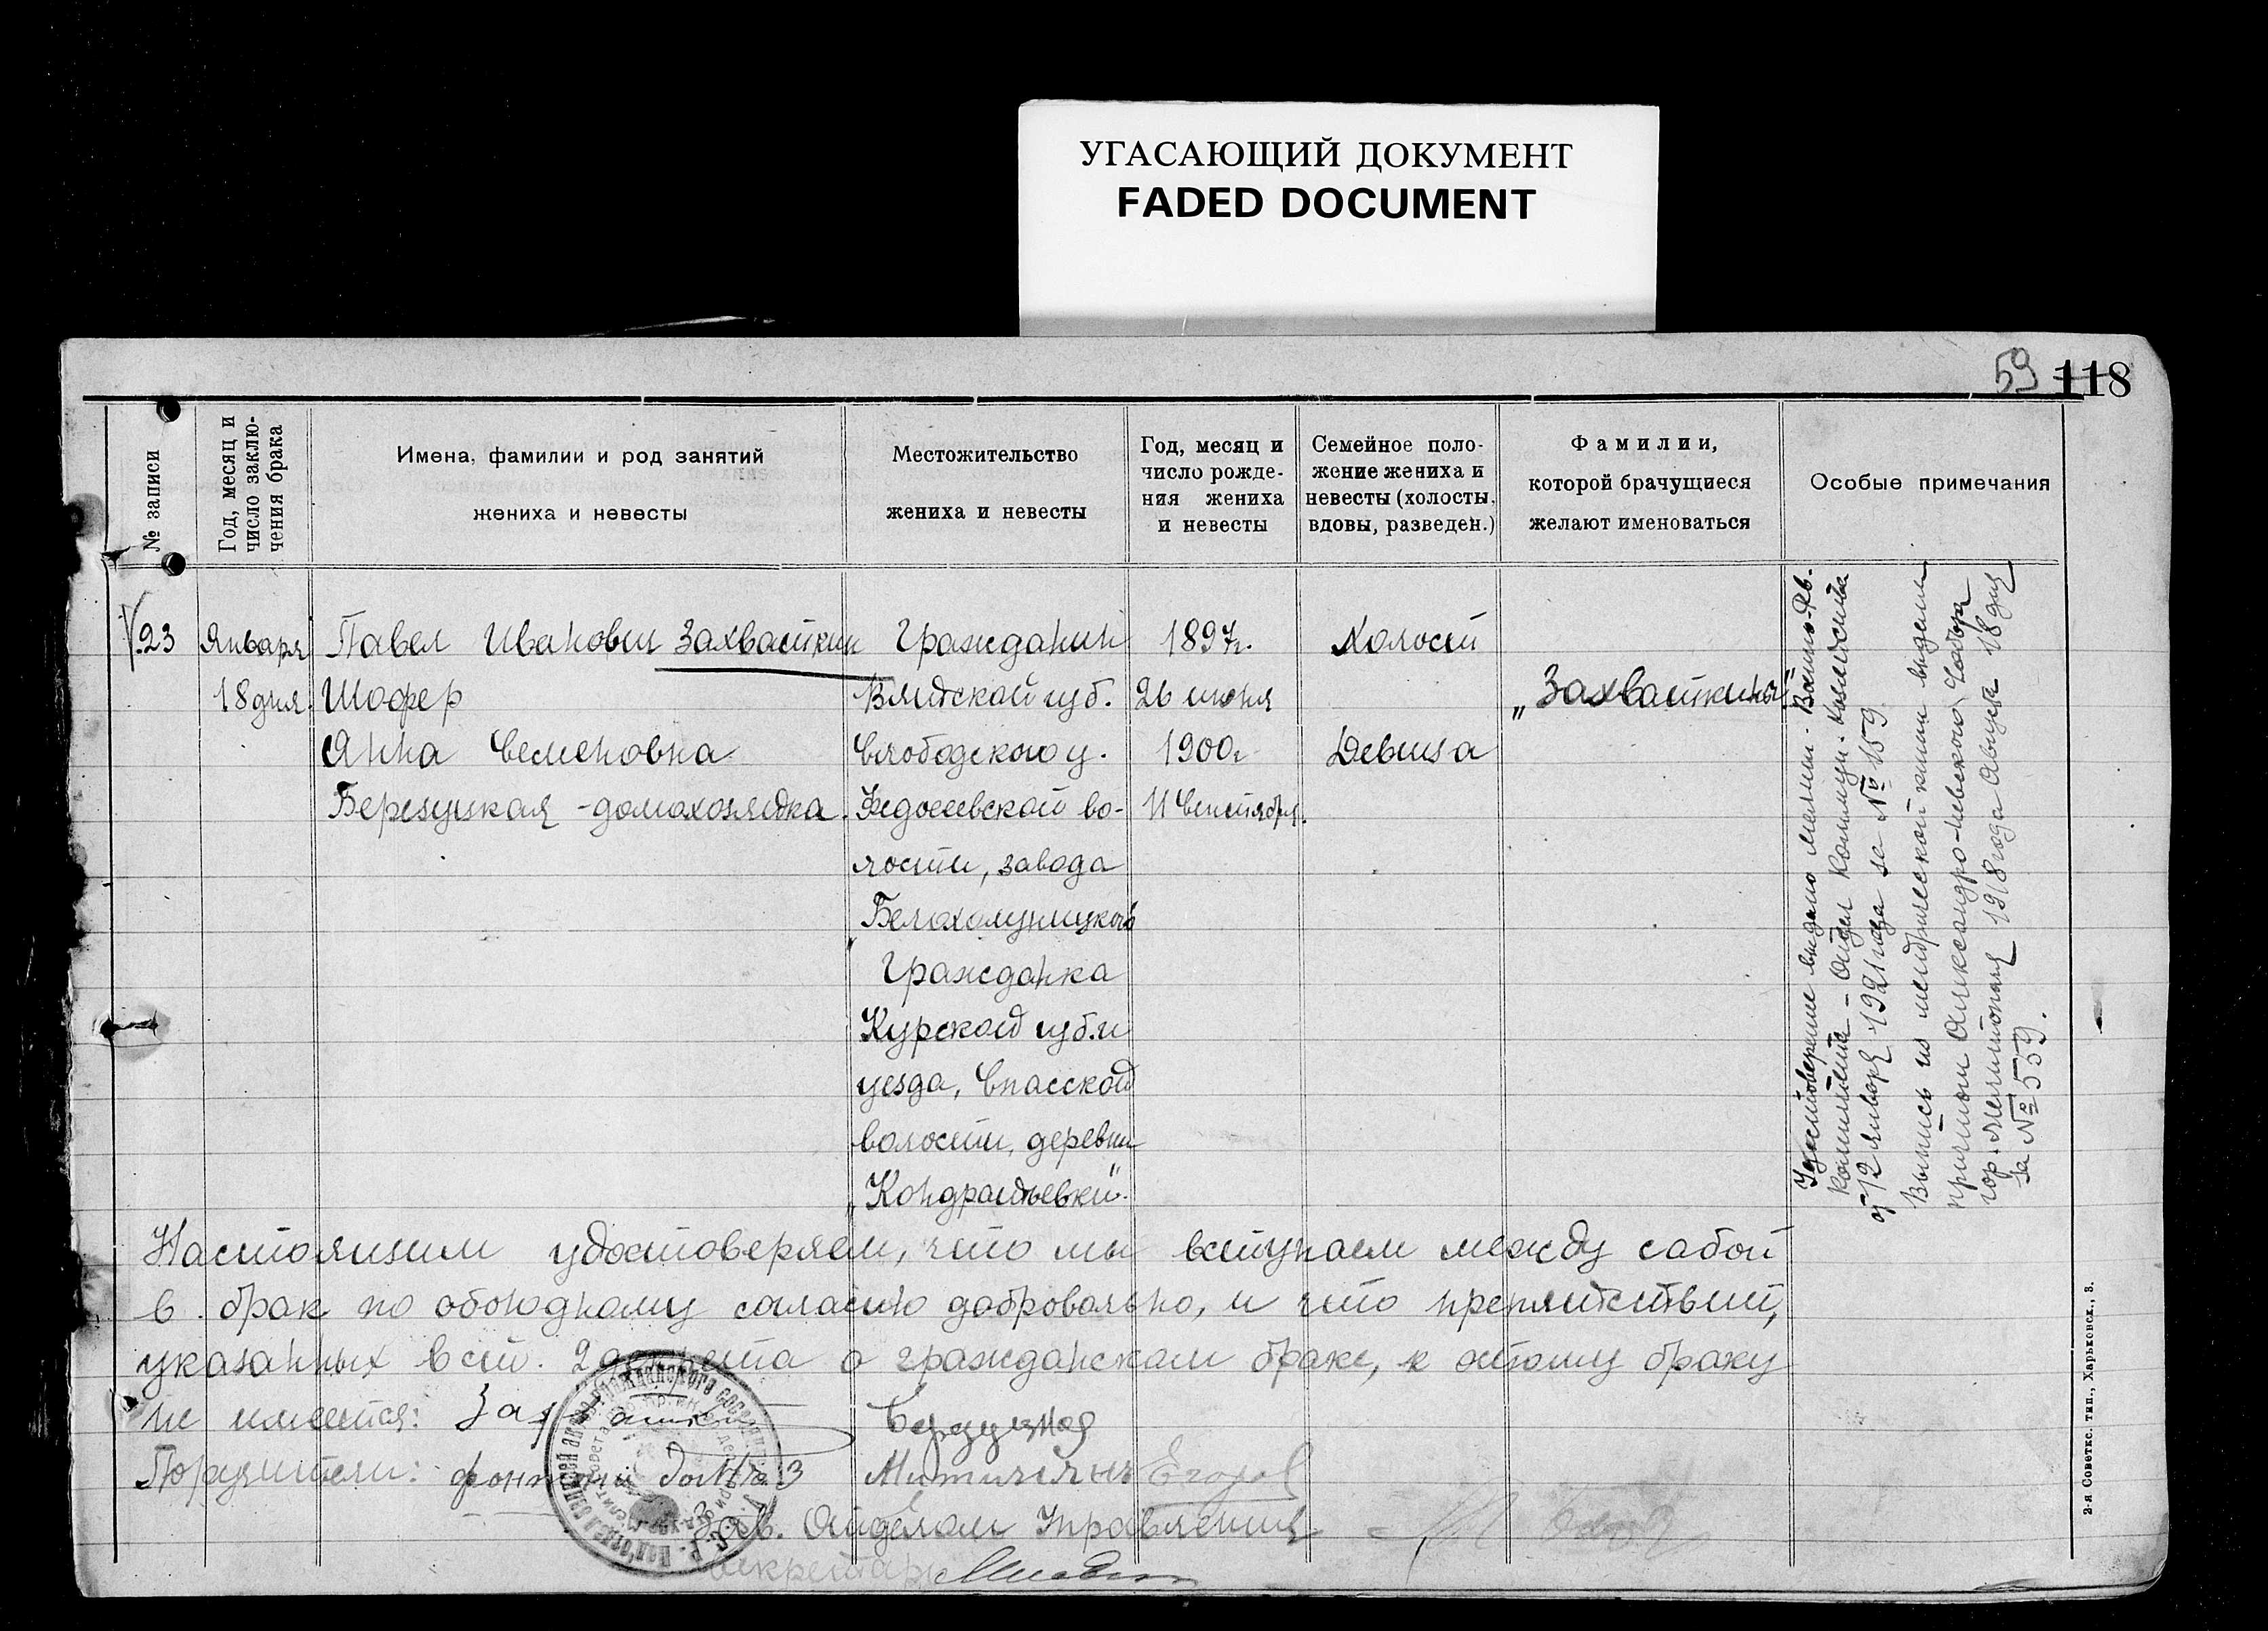 УГАСАЮЩИЙ ДОКУМЕНТ
FADED DOCUMENT
59 118
№ записи
Год, месяц и
число заклю-
чения брака
Имена, фамилии и род занятий
жениха и невесты
Местожительство
жениха и невесты
Год, месяц и
число рожде-
ния жениха
и невесты
Семейное поло-
жение жениха и
невесты (холосты,
вдовы, разведен.)
Фамилии,
которой брачущиеся
желают именоваться
Особые примечания
23
Января
18 дня.
Павел Иванович Захваткин
Шофер
Анна Семеновна
Березуцкая - домохозяйка.
Гражданин
Вятской губ.
Слободского у.
во-
лости, завода
Белохолуницкого
Гражданка
Курской губ. и
уезда, Спасской
волости, деревни
„Кондратьевки".
1897г.
26 июня
1900г
11 Сентября.
Холост
Девица
„Захваткины"
Удостоверение выдано
от 12 января 1921 года за № 159
Выпись из метрической книги выдана
причтом Александро-Невского Собора
гор. Мелитополя 1918 года Августа 18 дня
за № 559.
Настоящим удостоверяем, что мы вступаем между сабой
в брак по обоюдному согласию добровольно, и что препятствий,
указанных в ст. 2 декрета о гражданском браке, к этому браку
не имеется:
Поручители: Егоров
Зав. Отделом Управления
Секретарь
2-я Советск. тип., Харьковск., 3.